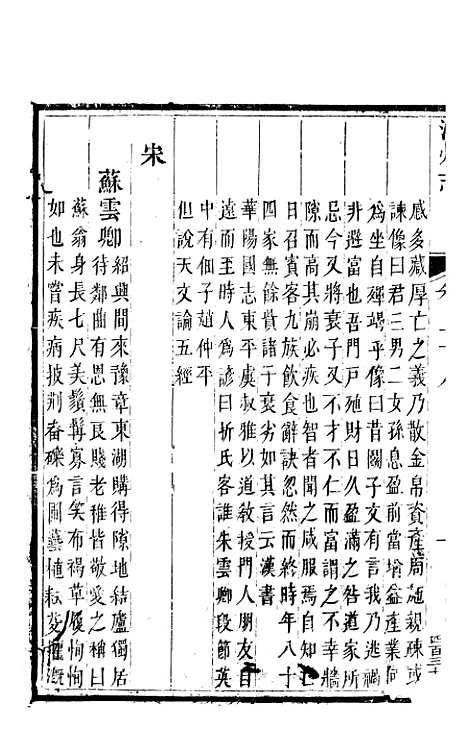 感多藏厚亡之義乃散金帛資產周施親疎或
諫像曰君三男二女孫息盈前當增益產業何
為坐自殫竭乎像曰昔鬬子文有言我乃逃禍
非避富也吾門戸殖財日久盈滿之咎道家所
忌今世將衰子又不才不仁而富謂之不幸牆
隙而高其崩必疾也智者聞之咸服焉自知亡
日召賓客九族飲食辭訣忽然而終時年八十
四家無餘貲諸子衰劣如其言云漢書
華陽國志東平虞叔雅以道教授門人朋友自
遠而至時人為諺曰折氏客誰朱雲卿段節英
中有佃子趙仲平
但說天文論五經
宋
蘇雲卿紹興間來豫章東湖購得隙地結廬獨居
待鄰曲有恩無良賤老稚皆敬愛之稱曰
蘇翁身長七尺美鬚髯寡言笑布褐草履恂恂
如也未嘗疾病披荆畚礫為圃藝植耘芟灌溉